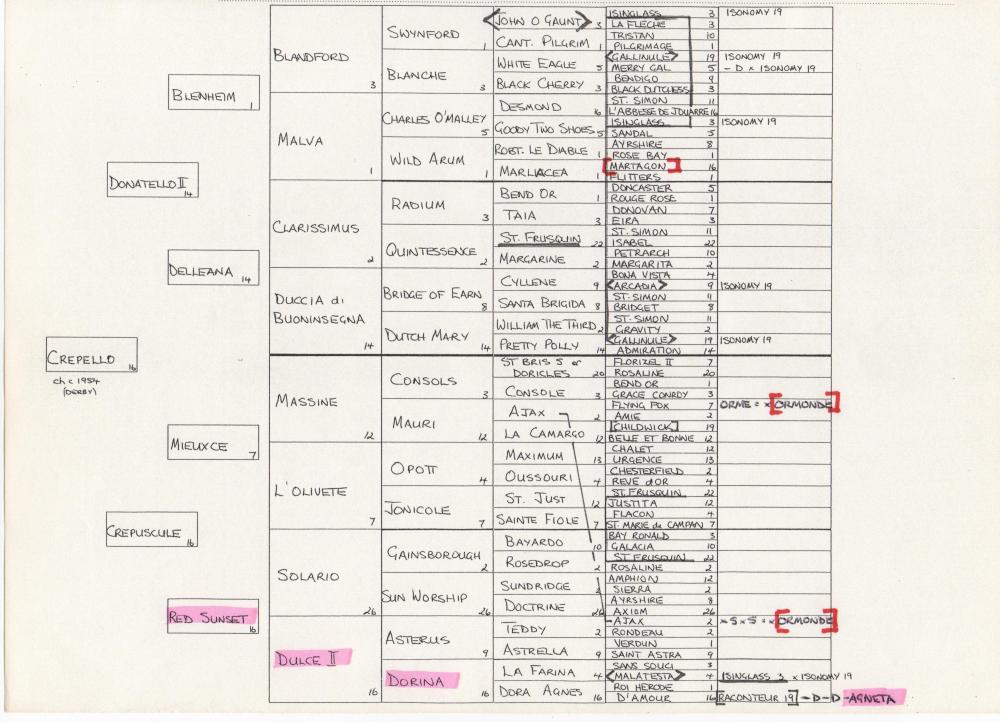 CREPELLO 16
ch c 1954
(DERBY)
DONATELLO II 14
CREPUSCULE 16
BLENHEIM 1
DELLEANA 14
MIEUXCE 7
RED SUNSET 16
BLANDFORD 3
MALVA 1
CLARISSIMUS 2
DUCCIA di
BUONINSEGNA 14
MASSINE 12
L'OLIVETE 7
SOLARIO 26
DULCE II 16
SWYNFORD 1
BLANCHE 3
CHARLES O'MALLEY 5
WILD ARUM 1
RADIUM 3
QUINTESSENCE 2
BRIDGE OF EARN 8
DUTCH MARY 14
CONSOLS 3
MAURI 12
OPOTT 4
JONICOLE 7
GAINSBOROUGH 2
SUN WORSHIP 26
ASTERUS 9
DORINA 16
<JOHN O GAUNT> 3
CANT. PILGRIM 1
WHITE EAGLE 5
BLACK CHERRY 3
DESMOND 16
GOODY TWO SHOES 5
ROBT. LE DIABLE 1
MARLIACEA 1
BEND OR 1
TAIA 3
ST. FRUSQUIN 22
MARGARINE 2
CYLLENE 9
SANTA BRIGIDA 8
WILLIAM THE THIRD 2
PRETTY POLLY 14
ST BRIS 5 or
DORICLES 20
CONSOLE 3
AJAX 2
LA CAMARGO 12
MAXIMUM 13
OUSSOURI 4
ST. JUST 12
SAINTE FIOLE 7
BAYARDO 10
ROSEDROP 2
SUNDRIDGE 2
DOCTRINE 26
TEDDY 2
ASTRELLA 9
LA FARINA 4
DORA AGNES 16
ISINGLASS 3 ISONOMY 19
LA FLECHE 3
TRISTAN 10
PILGRIMAGE 1
<GALLINULE> 19 ISONOMY 19
MERRY GAL 5 - D x ISONOMY 19
BENDIGO 9
BLACK DUTCHESS 3
ST. SIMON 11
L'ABBESSE DE JOUARRE 16
ISINGLASS 3 ISONOMY 19
SANDAL 5
AYRSHIRE 8
ROSE BAY 1
[MARTAGON] 16
FLITTERS 1
DONCASTER 5
ROUGE ROSE 1
DONOVAN 7
EIRA 3
ST. SIMON 11
ISABEL 22
PETRARCH 10
MARGARITA 2
BONA VISTA 4
<ARCADIA> 9 ISONOMY 19
ST. SIMON 11
BRIDGET 8
ST. SIMON 11
GRAVITY 2
<GALLINULE> 19 ISONOMY 19
ADMIRATION 14
FLORIZEL II 7
ROSALINE 20
BEND OR 1
GRACE CONROY 3
FLYING FOX 7 ORME = x [ORMONDE]
AMIE 2
[CHILDWICK] 19
BELLE ET BONNE 12
CHALET 12
URGENCE 13
CHESTERFIELD 2
REVE d'OR 4
ST. FRUSQUIN 22
JUSTITA 12
FLACON 4
ST. MARIE du CAMPAN 7
BAY RONALD 3
GALACIA 10
ST FRUSQUIN 22
ROSALINE 2
AMPHION 12
SIERRA 2
AYRSHIRE 8
AXIOM 26
AJAX 2 x S x S = x [ORMONDE]
RONDEAU 2
VERDUN 1
SAINT ASTRA 9
SANS SOUCI 3
<MALATESTA> 4 ISINGLASS 3 x ISONOMY 19
ROI HERODE 1
D'AMOUR 16 [RACONTEUR 19] - D - D - AGNETA